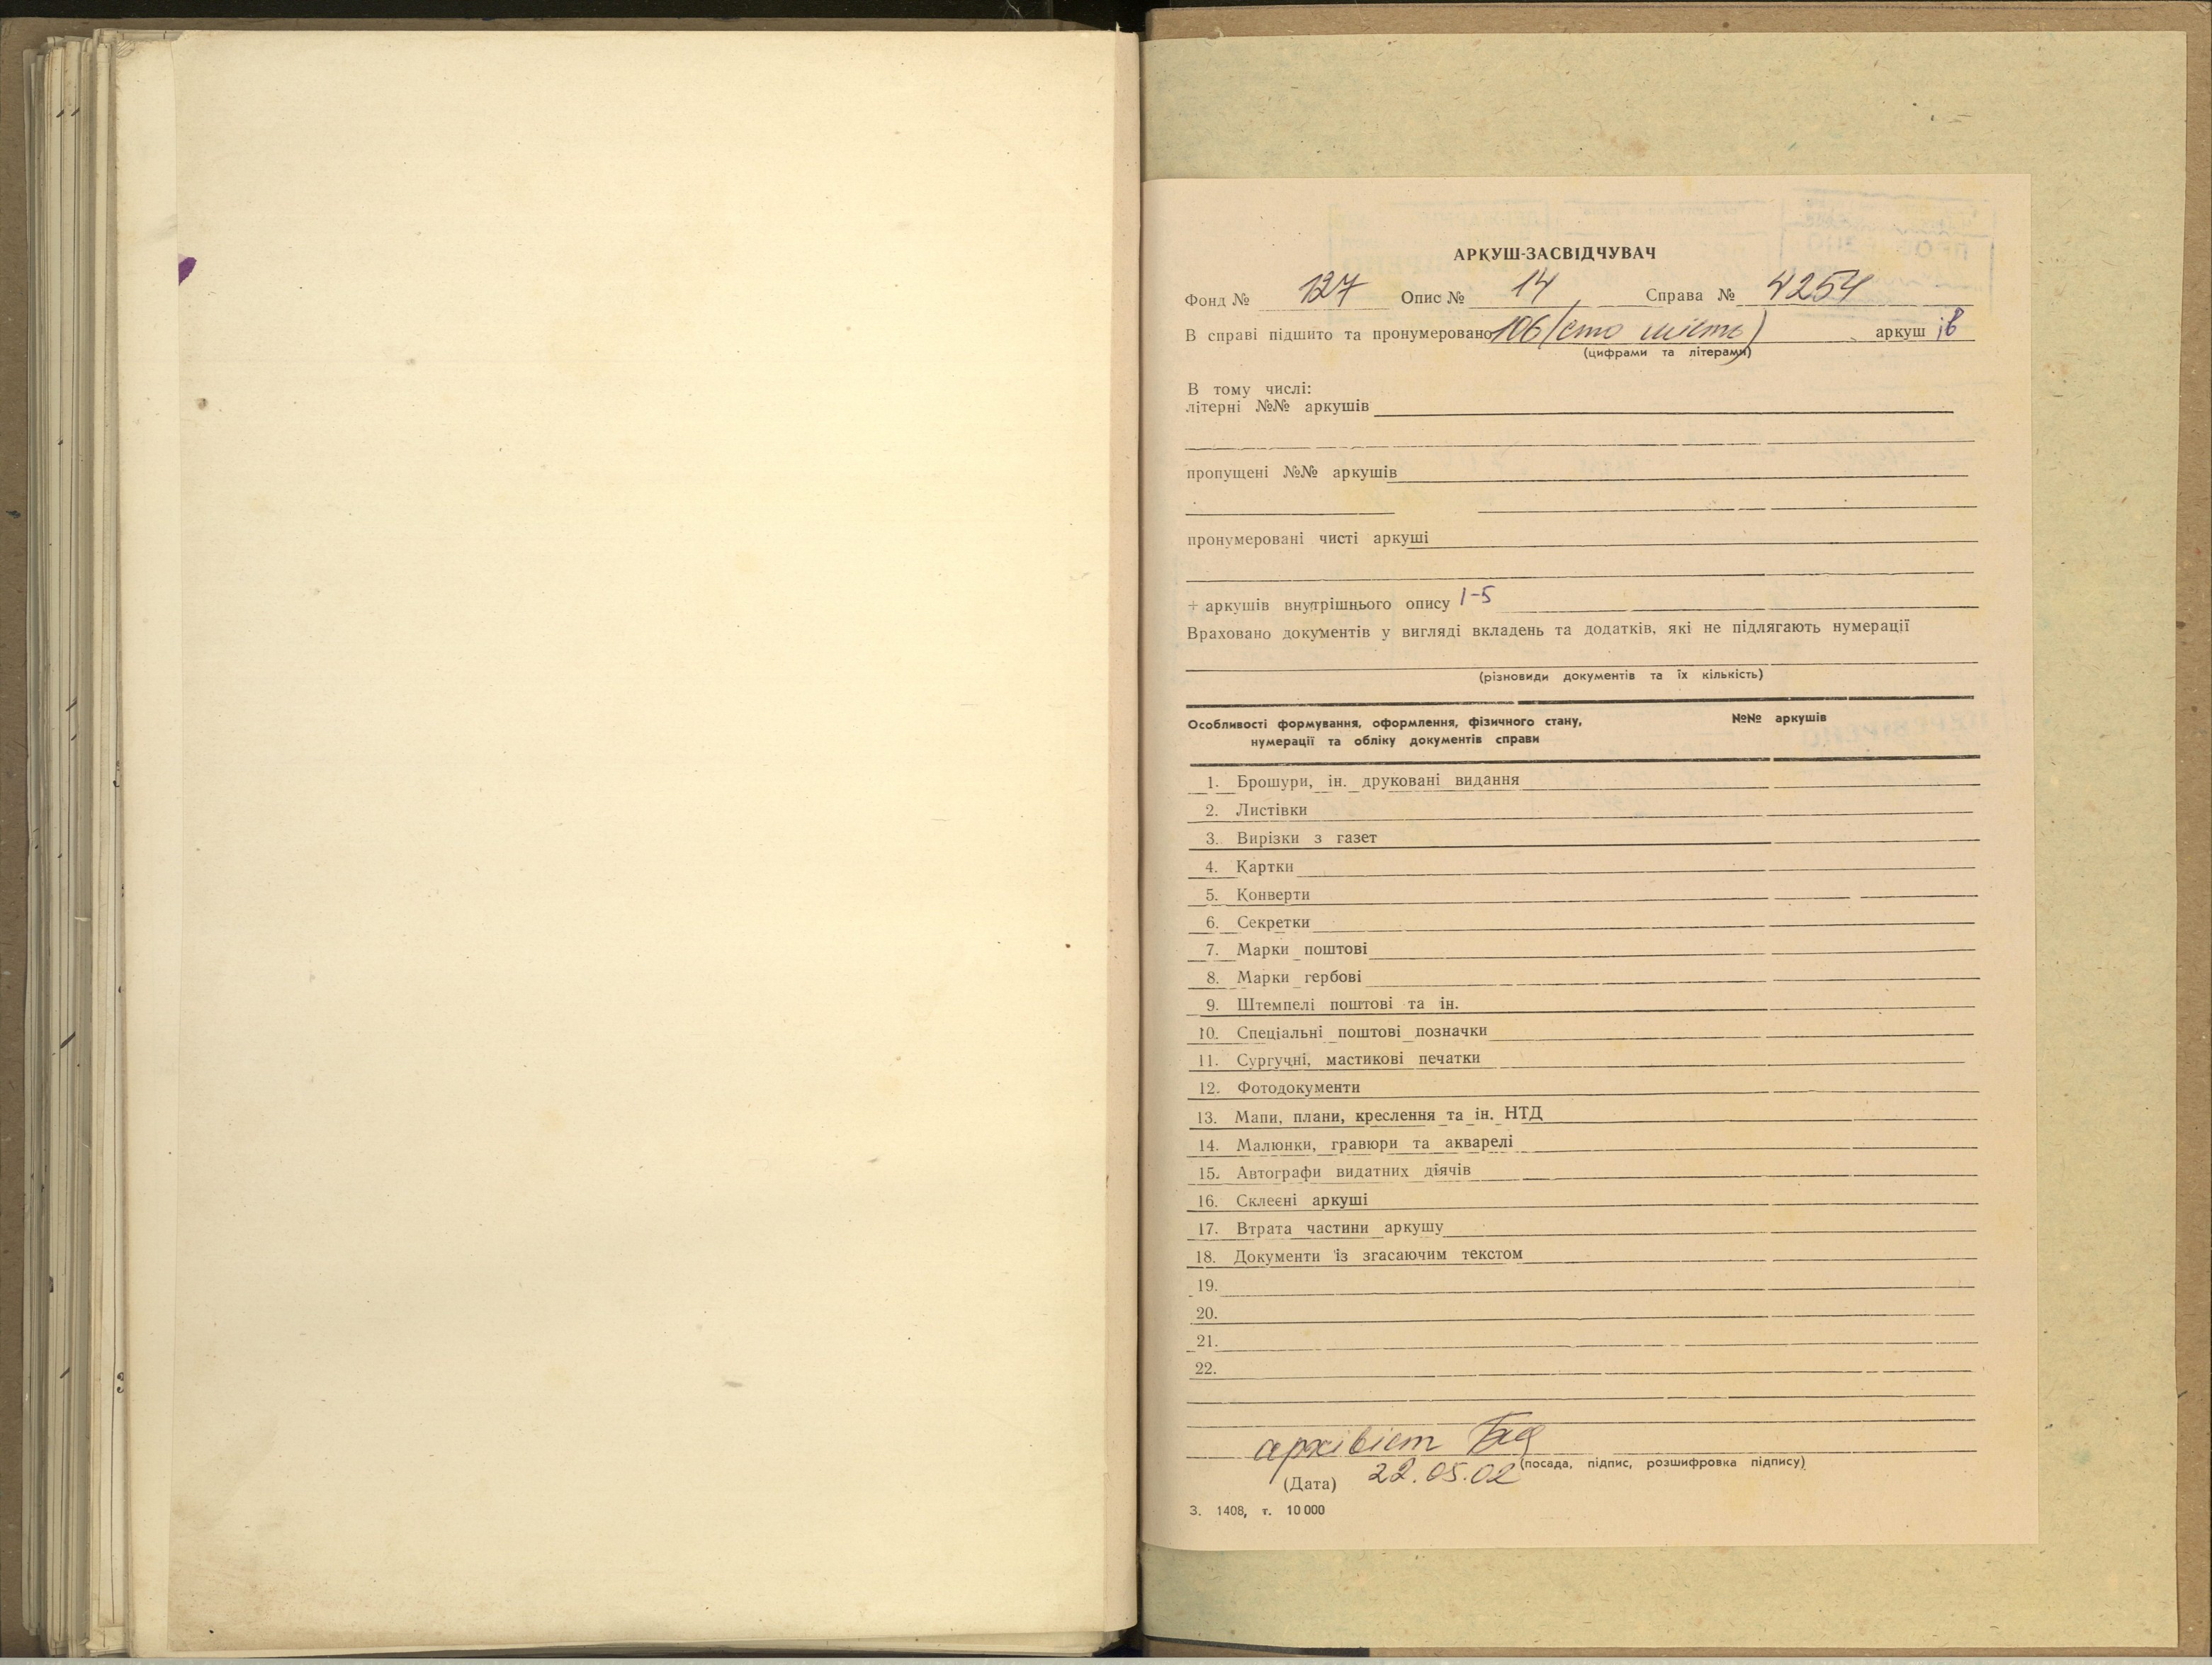 АРКУШ-ЗАСВІДЧУВАЧ
Фонд № 127 Опис № 14, Справа № 4254
В справі підшито та пронумеровано 106 (сто шість) аркуш ів
(цифрами та літерами)
В тому числі:
літерні №№ аркушів
пропущені №№ аркушів
пронумеровані чисті аркуші
+ аркушів внутрішнього опису 1-5
Враховано документів у вигляді вкладень та додатків, які не підлягають нумерації
(різновиди документів та їх кількість)
Особливості формування, оформлення, фізичного стану, №№ аркушів
нумерації та обліку документів справи
1. Брошури, ін. друковані видання
2. Листівки
3. Вирізки з газет
4. Картки
5. Конверти
6. Секретки
7. Марки поштові
8. Марки гербові
9. Штемпелі поштові та ін.
10. Спеціальні поштові позначки
11. Сургучні, мастикові печатки
12. Фотодокументи
13. Мапи, плани, креслення та ін. НТД
14. Малюнки, гравюри та акварелі
15. Автографи видатних діячів
16. Склеєні аркуші
17. Втрата частини аркушу
18. Документи із згасаючим текстом
19.
20.
21.
22.
архівіст
(посада, підпис, розшифровка підпису)
(Дата) 22.05.02
З. 1408, т. 10 000